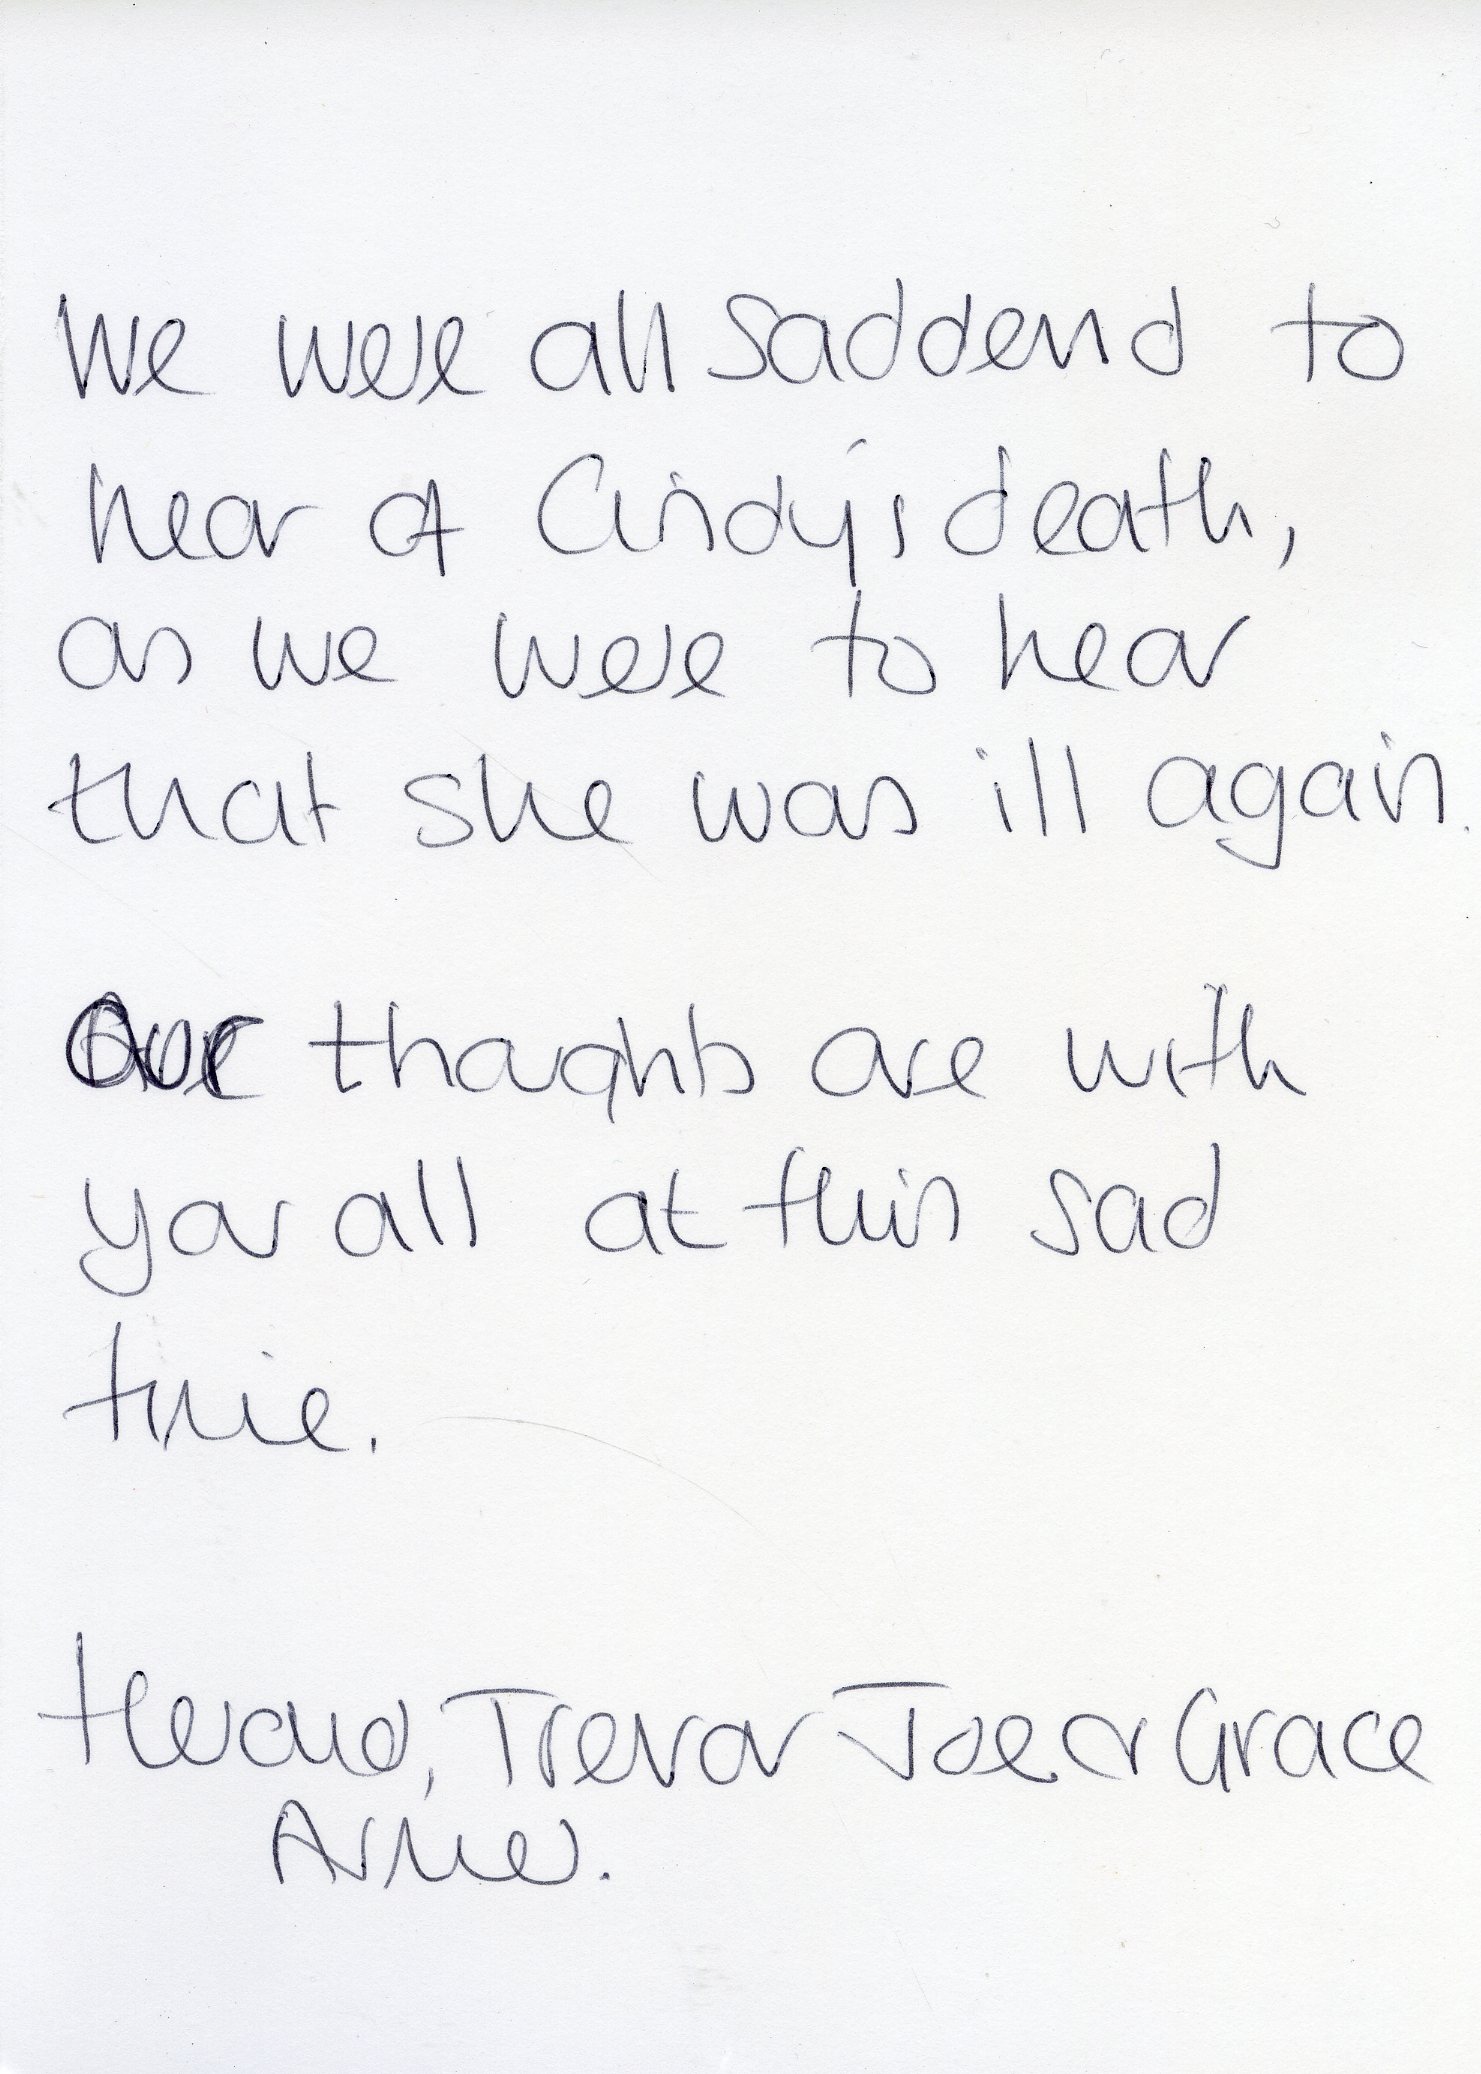 We were all saddend to
hear of Cindy's death,
as we were to hear
that she was ill again.
Our thoughts are with
you all at this sad
time.
Trevor Joe & Grace